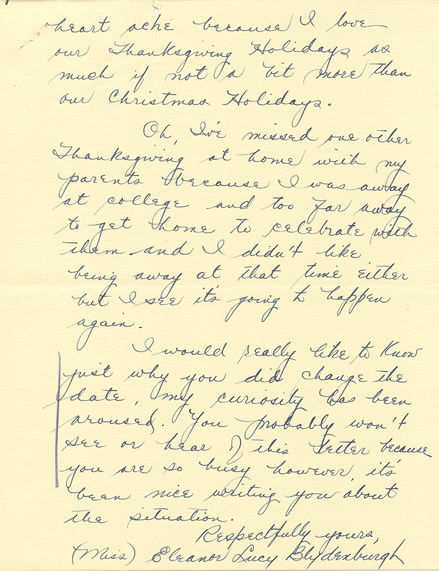 heart ache because I love
our Thanksgiving Holidays as
much if not a bit more than
our Christmas Holidays.
Oh, I've missed one other
Thanksgiving at home with my
parents because I was away
at college and too far away
to get home to celebrate with
them and I didn't like
being away at that time either
but I see it's going to happen
again.
I would really like to know
just why you did change the
date, my curiosity has been
aroused. You probably won't
see or hear of this letter because
you are so busy however, it's
been nice writing you about
the situation.
Respectfully yours,
(Miss) Eleanor Lucy Blydenburgh